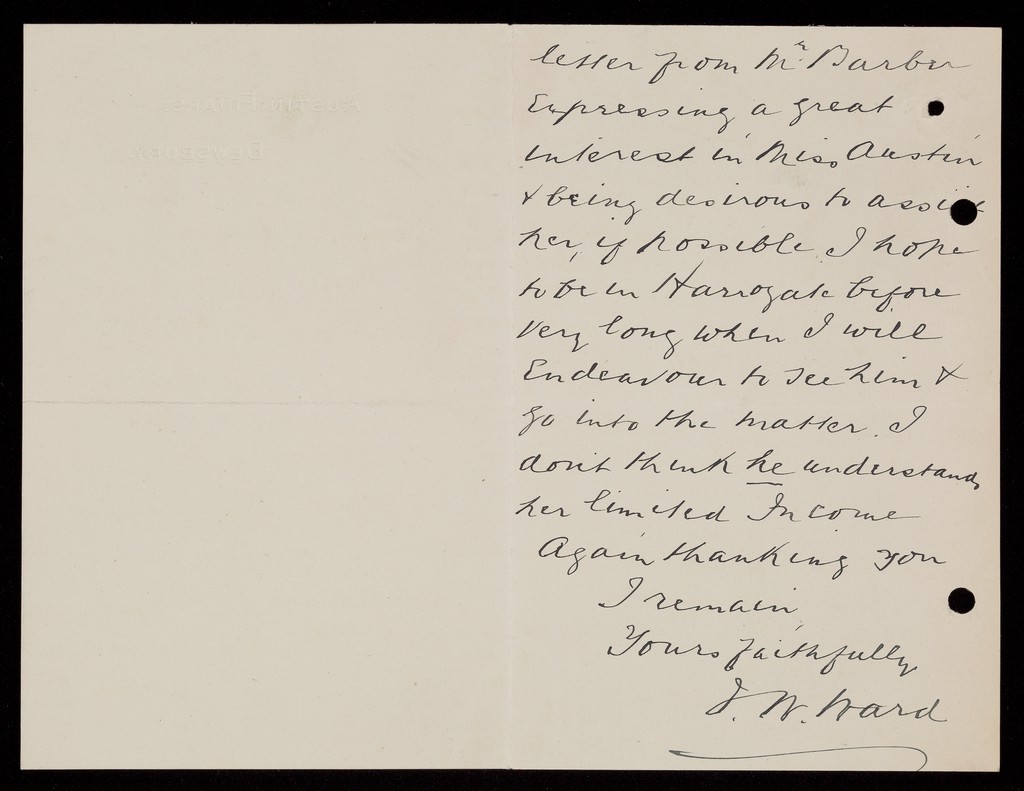 letter from Mr. Barber
Expressing a great
interest in Miss Austin
& being desirous to assist
her, if possible. I hope
to be in Harrogate before
very long when I will
Endeavour to see him &
go into the matter. I
don't think he understands
her limited Income
Again thanking you
I remain,
Yours faithfully
J. W. Ward